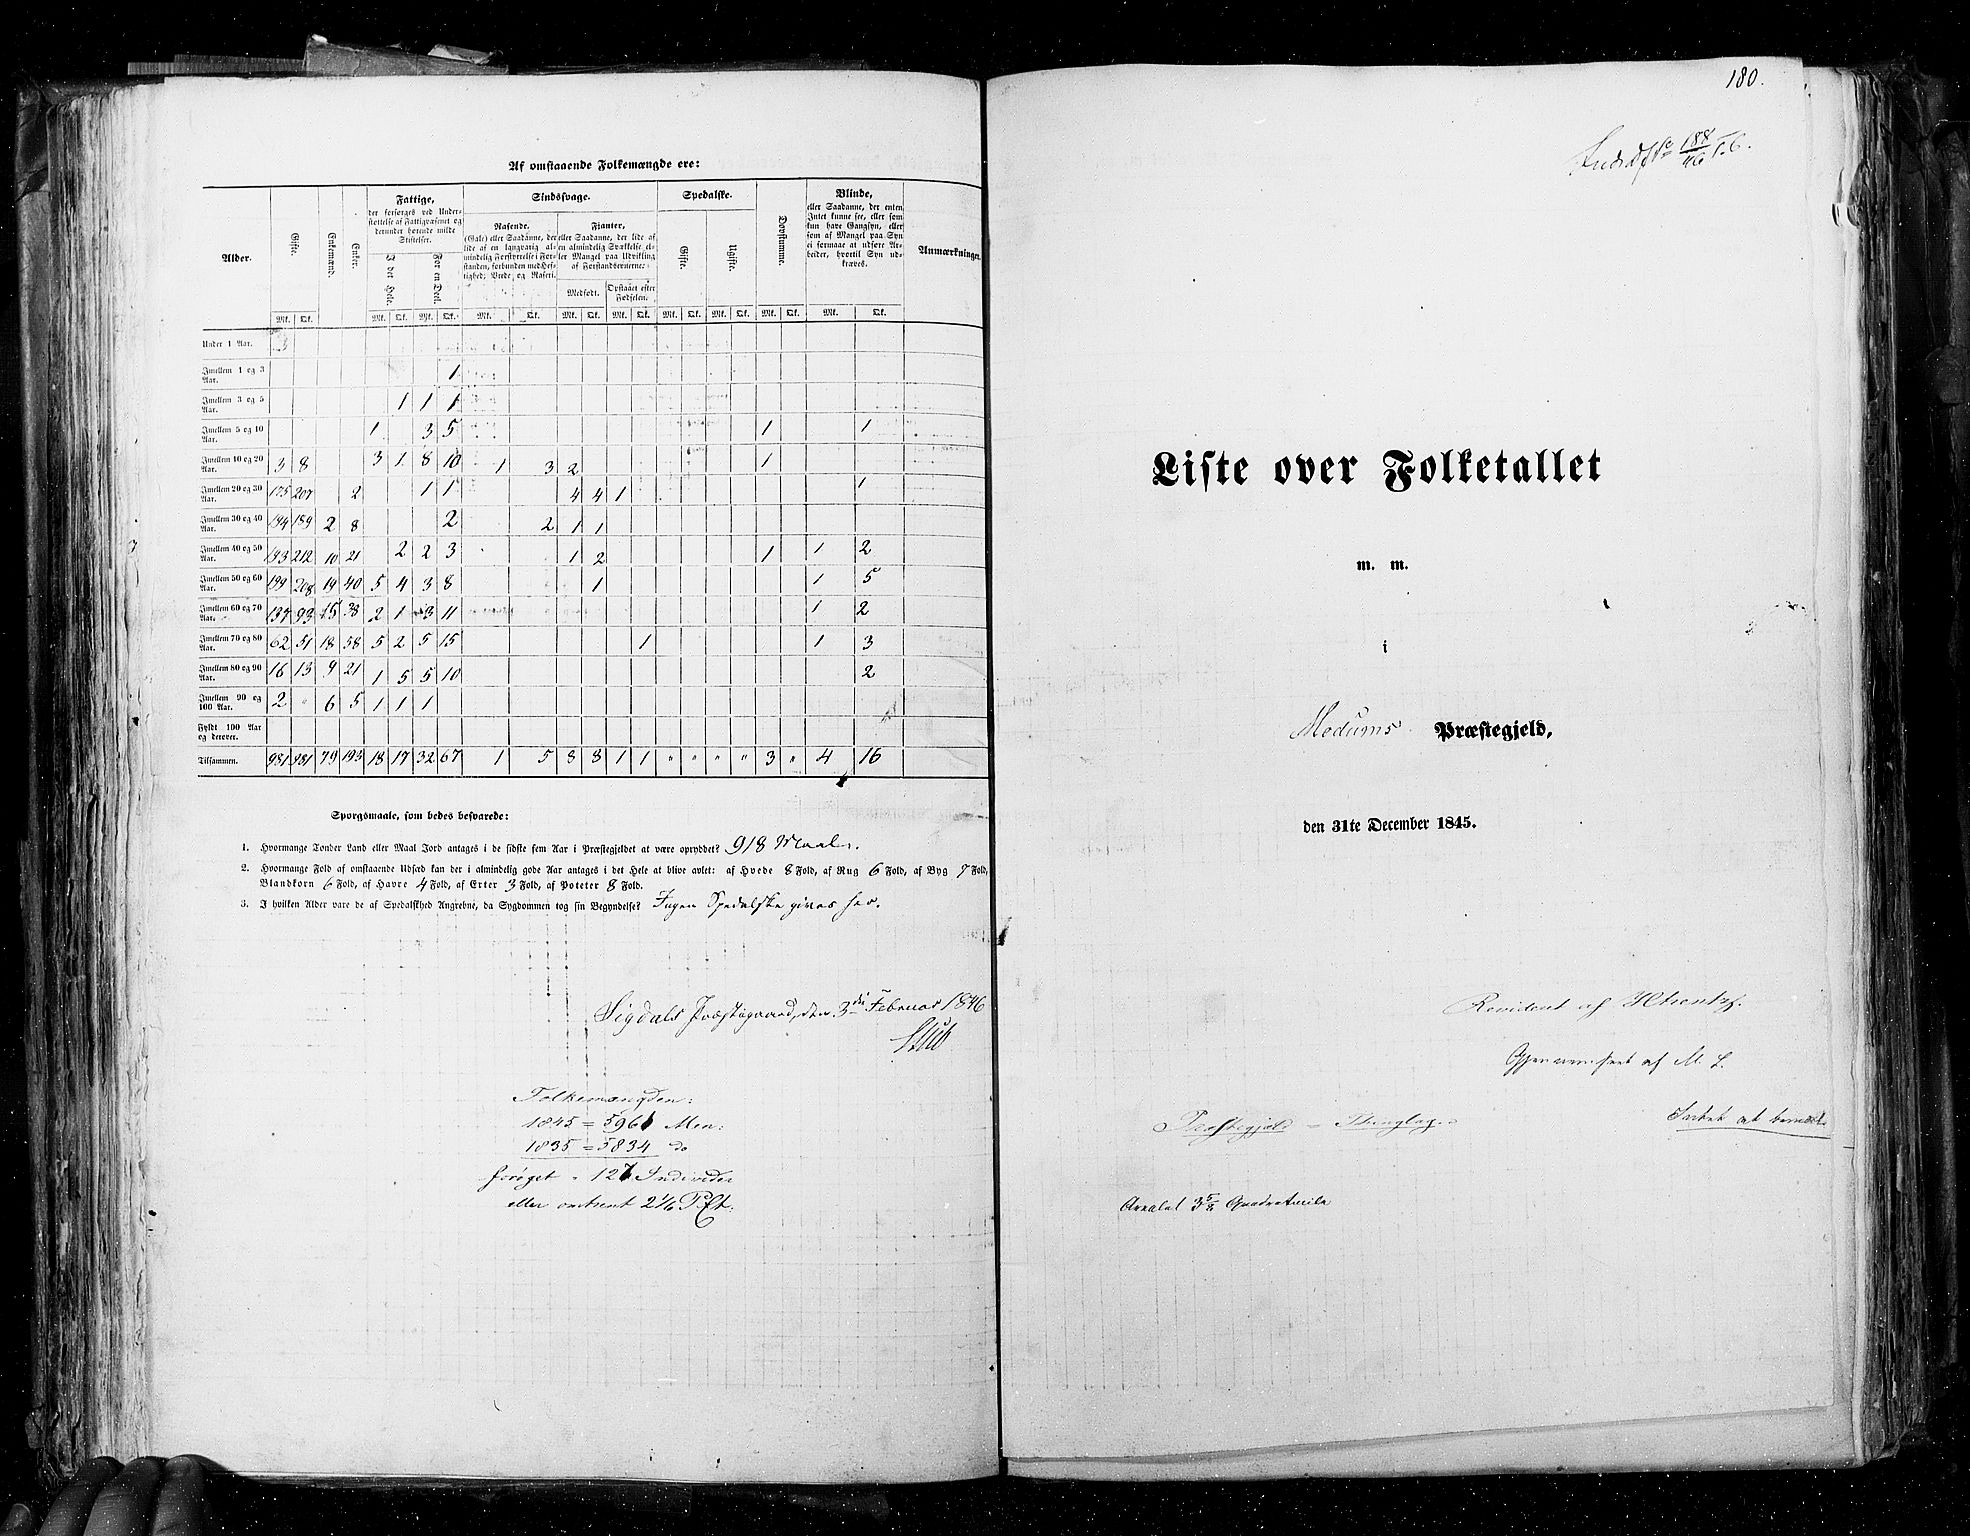 Af omstaaende Folkemængde ere:
Alder. Gifte. Enkemænd. Enker. Fattige, Sindssvage. Spedalske. Døvstumme. Blinde, Anmærkninger.
der forsørges ved Understøttelse af Fattigvæsenet og derunder hørende milde Stiftelser.
I det Hele. For en Deel.
Rasende.
(Gale) eller Saadanne, der lide af en langvarig almindelig Forstyrrelse i Forstanden, forbunden med Heftighed, Vrede og Raseri.
Fjanter,
eller Saadanne, der lide af en almindelig Svækkelse eller Mangel paa Udvikling af Forstandsevnerne:
Medfødt. Opstaaet efter Fødselen.
Gifte. Ugifte.
eller Saadanne, der enten Intet kunne see, eller som kun have Gangsyn, eller som af Mangel paa Syn ei formaae at udføre Arbeider, hvortil Syn udkræves.
Mk. Qk. Mk. Qk. Mk. Qk. Mk. Qk. Mk. Qk. Mk. Qk. Mk. Qk. Mk. Qk. Mk. Qk. Mk. Qk.
Under 1 Aar.
Imellem 1 og 3 Aar. 1
Imellem 3 og 5 Aar. 1 1 1
Imellem 5 og 10 Aar. 1 3 5 1 1
Imellem 10 og 20 Aar. 3 8 3 1 8 10 1 3 2 1
Imellem 20 og 30 Aar. 175 207 2 1 1 4 4 1 1
Imellem 30 og 40 Aar. 194 189 2 8 2 2 1 1
Imellem 40 og 50 Aar. 193 212 10 21 2 2 3 1 2 1 1 2
Imellem 50 og 60 Aar. 199 208 19 40 5 4 3 8 1 1 5
Imellem 60 og 70 Aar. 137 93 15 38 2 1 3 11 1 2
Imellem 70 og 80 Aar. 62 51 18 58 5 2 5 15 1 1 3
Imellem 80 og 90 Aar. 16 13 9 21 1 5 5 10 2
Imellem 90 og 100 Aar. 2 " 6 5 1 1 1
Fyldt 100 Aar og derover.
Tilsammen. 981 981 79 193 18 17 32 67 1 5 8 8 1 1 " " " " 3 " 4 16
Spørgsmaale, som bedes besvarede:
1. Hvormange Tønder Land eller Maal Jord antages i de sidste fem Aar i Præstegjeldet at være opryddet? 918 Maal.
2. Hvormange Fold af omstaaende Udsæd kan der i almindelig gode Aar antages i det Hele at blive avlet: af Hvede 8 Fold, af Rug 6 Fold, af Byg 7 Fold,
Blandkorn 6 Fold, af Havre 4 Fold, af Erter 3 Fold, af Poteter 8 Fold.
3. I hvilken Alder vare de af Spedalskhed Angrebne, da Sygdommen tog sin Begyndelse? Ingen Spedalske gives her.
Sigdals Præstegaard, den 3die Februar 1846
Stub
Folkemængden:
1845 = 5961 Men:
1835 = 5834 do
forøget " 127 Individer
eller omtrent 2 1/6 PCt.
180.
188/46
Liste over Folketallet
m. m.
i
Modums Præstegjeld,
den 31te December 1845.
Revideret af
Gjennemseet af M. L.
Præstegjeld = Thinglag
at bemærke
Arealet 3 5/8 Quadratmile